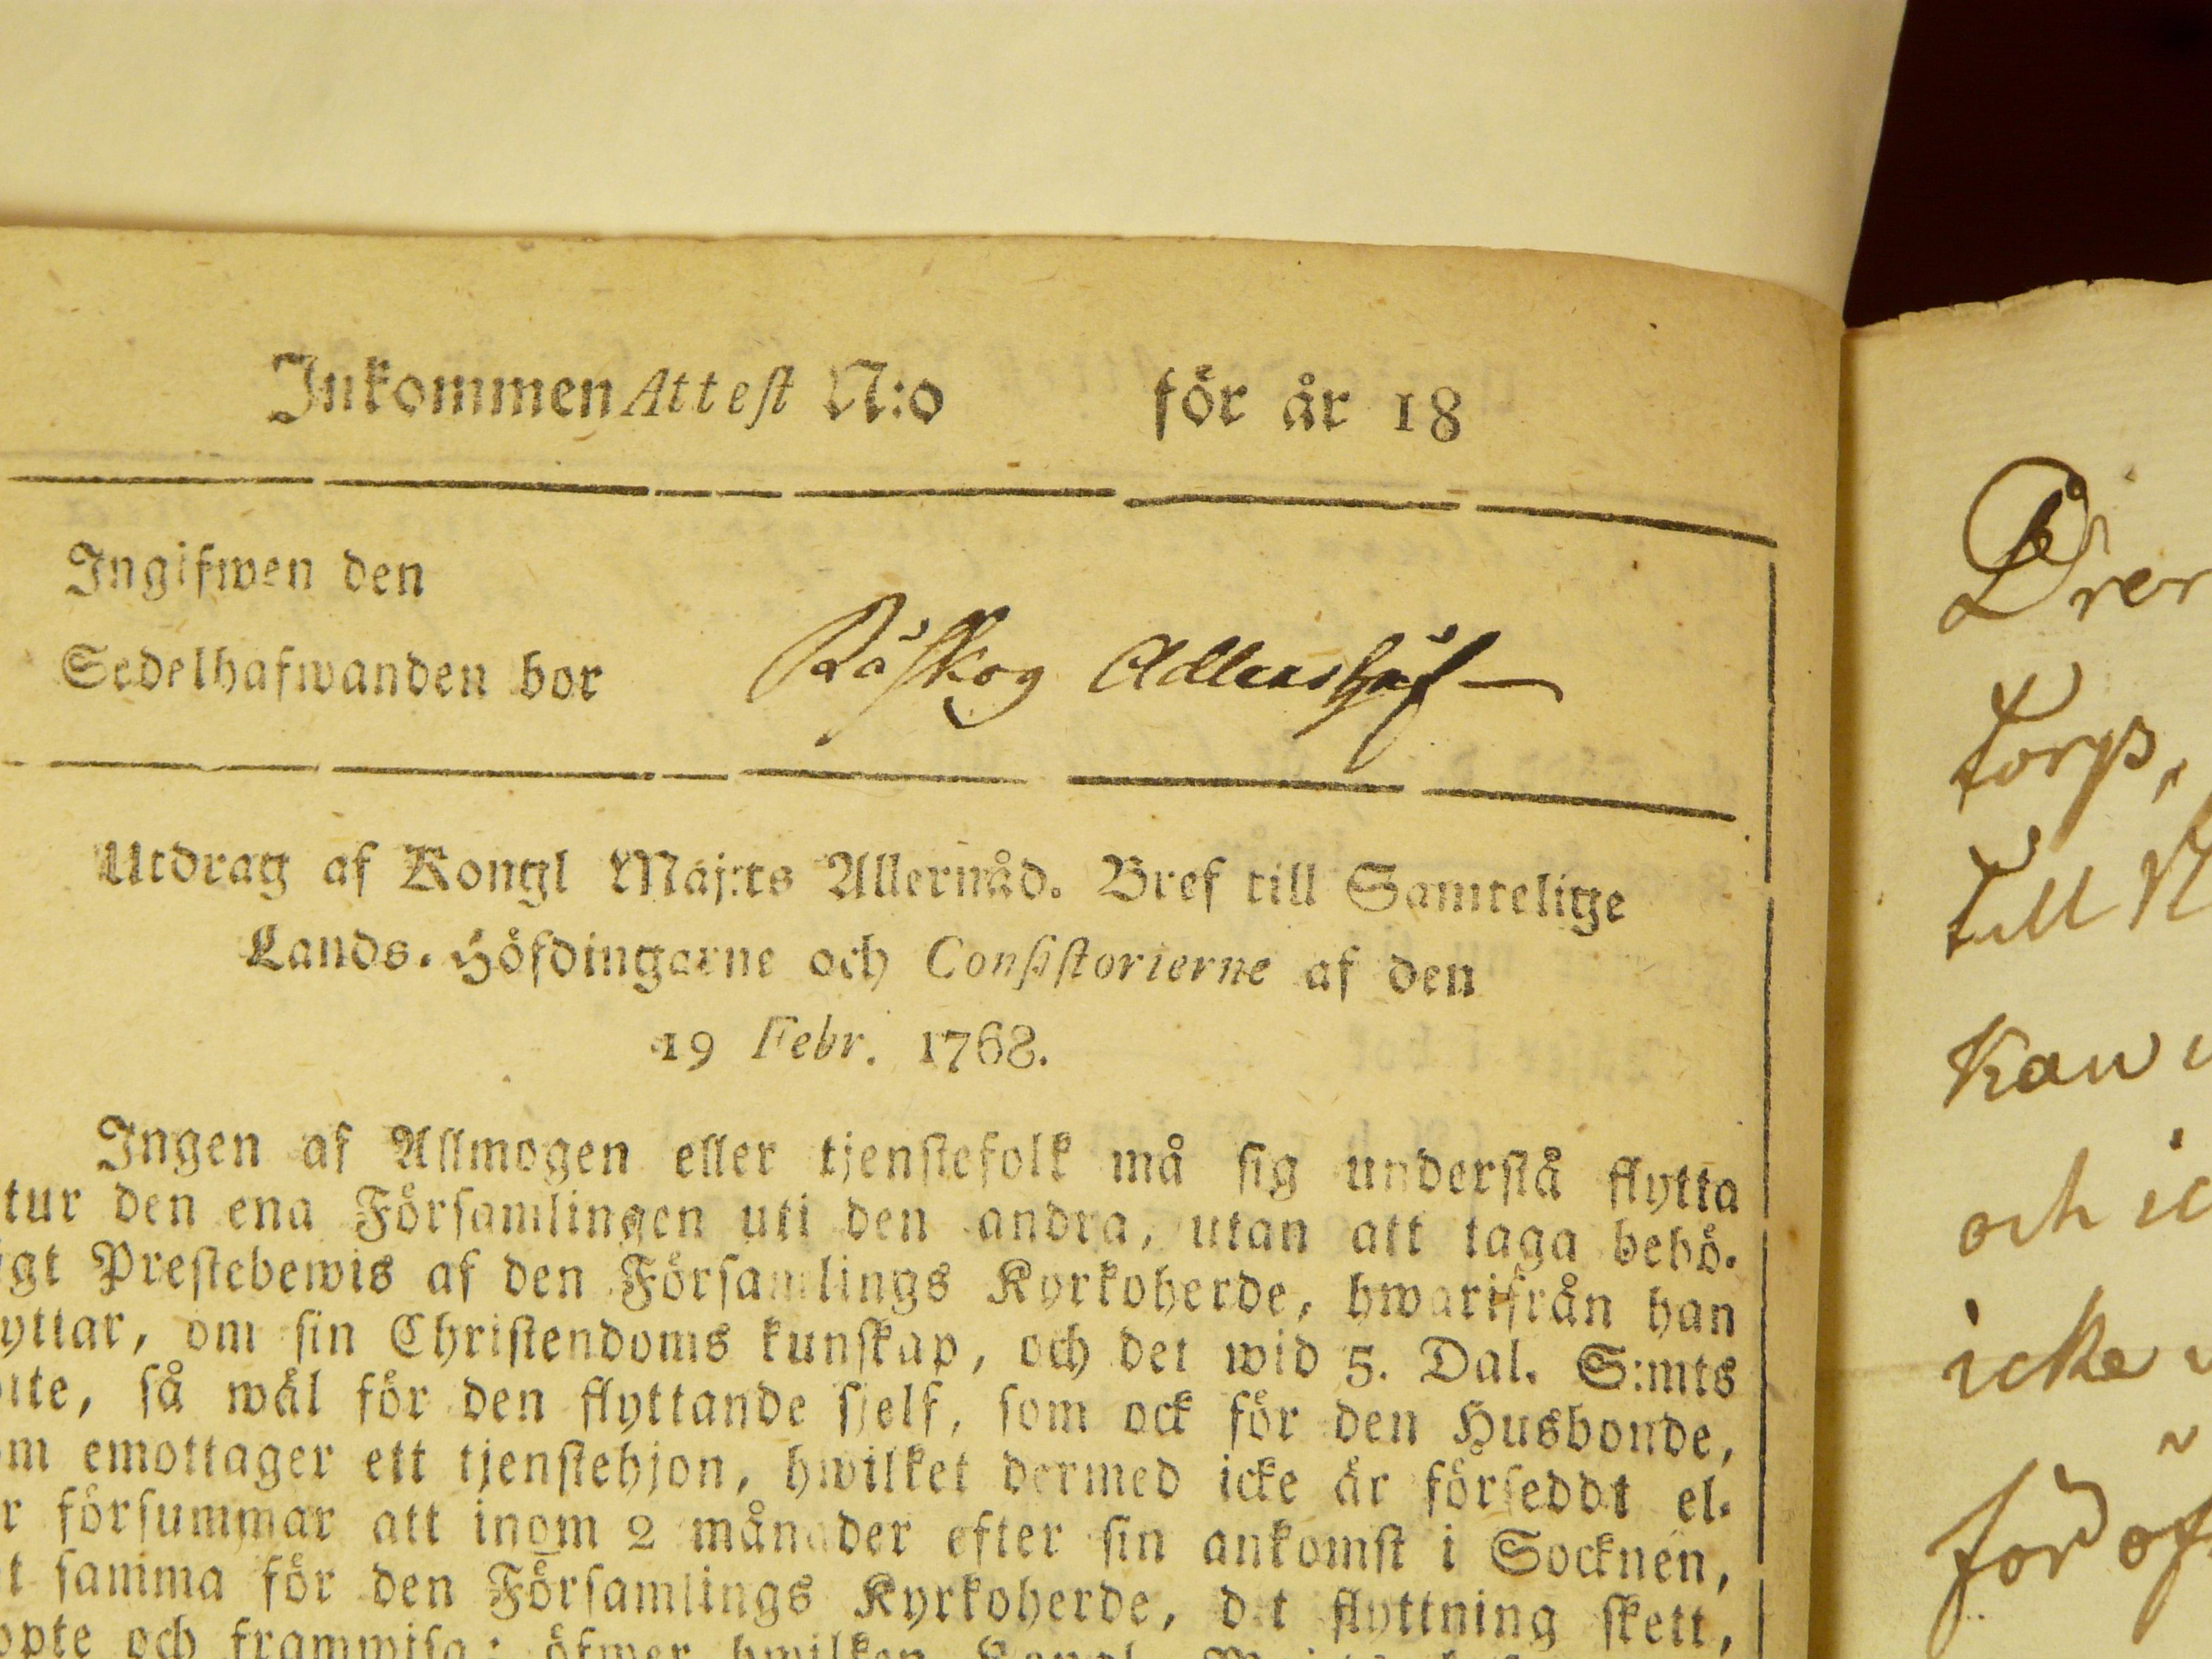 Inkommen Attest N:o för år 18
Ingifwen den
Sedelhafwanden bor Råskog Adlershuf
Utdrag af Kongl Maj:ts Allernåd. Bref till Samtelige
Lands-Höfdingarne och Consistorierne af den
19 Febr. 1768.
Ingen af Allmogen eller tjenstefolk må sig understå flytta
utur den ena Församlingen uti den andra, utan att taga behö-
igt Prestebewis af den Församlings Kyrkoherde, hwarifrån han
yttar, om sin Christendoms kunskap, och det wid 5. Dal. S:mts
ite, så wål för den flyttande sjelf, som ock för den Husbonde,
om emottager ett tjenstehjon, hwilket dermed icke är förseddt el-
r försummar att inom 2 månader efter sin ankomst i Socknen,
t samma för den Församlings Kyrkoherde, dit flyttning skett,
opte och framwisa: öfwer hwilken
Drer
Torps,
till
Kan
och
icke
för